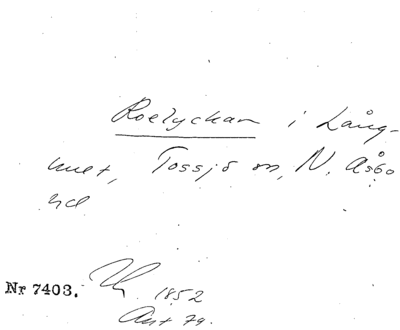 Roelyckan i Lång-
 Tossjö sn, N. Åsbo
hd
Nr 7403.
1852
Ant 79.